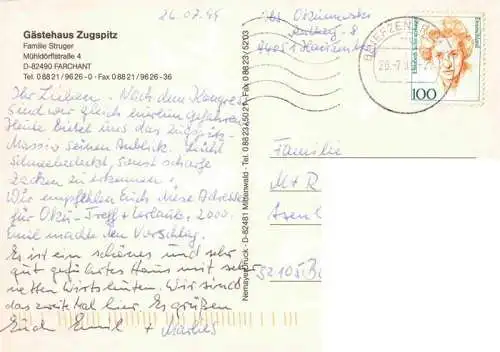 26.07.99
Gästehaus Zugspitz
Familie Struger
Mühldörflstraße 4
D-82490 FARCHANT
Tel. 0 88 21 / 96 26 - 0 · Fax 0 88 21 / 96 26 - 36
Ihr Lieben. Nach dem Kongreß
sind wir gleich hierher gefahren
Heute bietet uns das Zugspitz-
Massiv seinen Anblick. Leicht
Schneebedeckt, sonst scharfe
Zacken zu erkennen.
Wir empfehlen Euch diese Adresse
für Treff + Urlaub, 2000.
Emil machte den Vorschlag.
Es ist ein schönes und sehr
gut geführtes Haus mit sehr
netten Wirtsleuten. Wir sind
das zweite Mal hier. Es grüßen
Euch Emil +
Druck · D-82481 Mittenwald · Tel. 0 88 23 65 021 · Fax 0 88 23 / 52 03
BRIEFZENTRUM
Deutschland
100
Familie
M + R